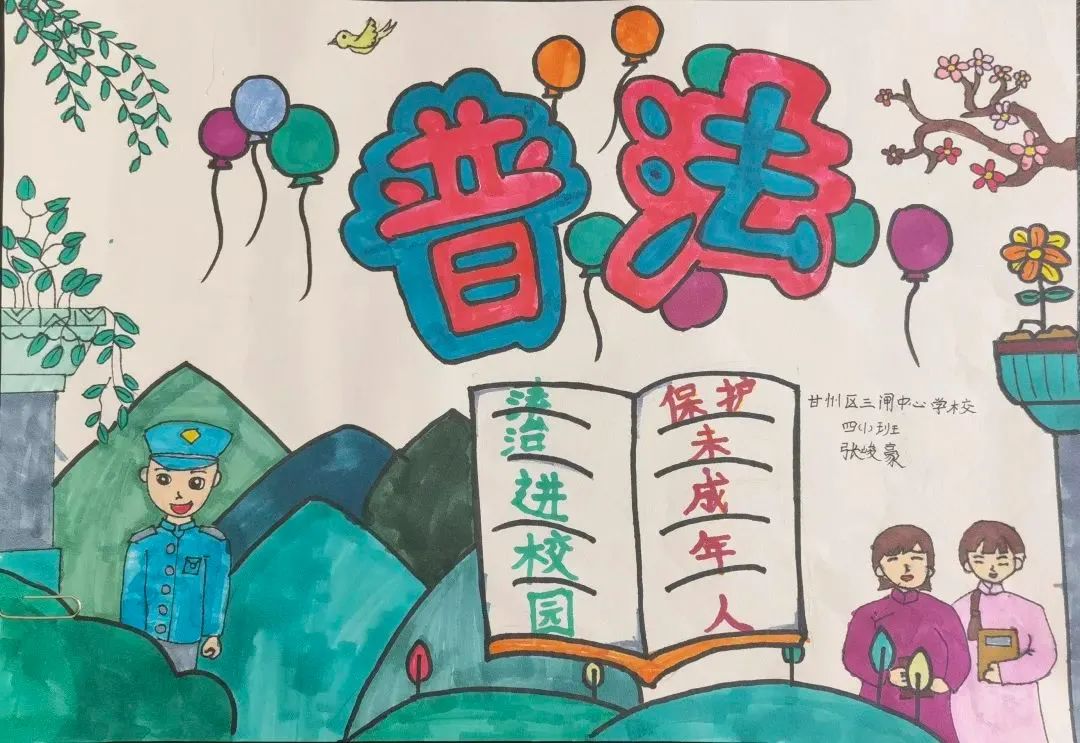 普法
法
治
进
校
园
保护
未
成
年
人
甘州区三闸中心学校
四(1)班
张峻豪